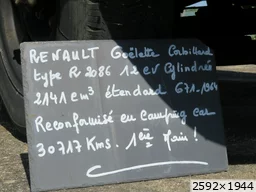 RENAULT Goëlette Corbillard
type R 2086 12 CV Cylindrée
2141 cm³ étendard 671-1964
Reconformisé en Camping car
30717 Kms. 1ère Main !
2592×1944